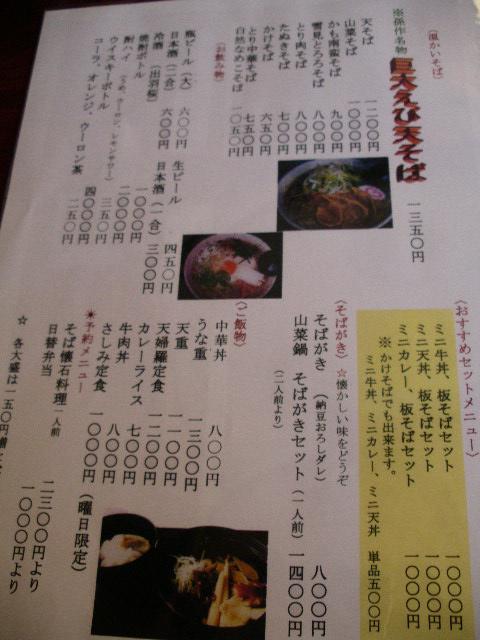 (温かいそば)
※孫作名物
巨大えび天そば 一三五〇円
天そば 一二〇〇円
山菜そば 一〇〇〇円
かも南蛮そば 九〇〇円
雪見とろろそば 八〇〇円
とり肉そば 八〇〇円
たぬきそば 七〇〇円
かけそば 六五〇円
とり中華そば 七五〇円
自然なめこそば 一〇五〇円
(お飲み物)
瓶ビール(大) 六〇〇円
生ビール 四五〇円
日本酒(二合) 六〇〇円
日本酒(一合) 三〇〇円
冷酒(出羽桜) 一〇〇〇円
焼酎ボトル 二〇〇〇円
酎ハイ(うめ、ウーロン、レモンサワー) 三五〇円
ウイスキーボトル 四〇〇〇円
コーラ、オレンジ、ウーロン茶 二五〇円
(おすすめセットメニュー)
ミニ牛丼、板そばセット 一〇〇〇円
ミニ天丼、板そばセット 一〇〇〇円
ミニカレー、板そばセット 一〇〇〇円
※かけそばでも出来ます。
ミニ牛丼、ミニカレー、ミニ天丼 単品五〇〇円
(そばがき) ☆懐かしい味をどうぞ
そばがき(納豆おろしダレ) 八〇〇円
山菜鍋 そばがきセット(一人前) 一四〇〇円
(二人前より)
(ご飯物)
中華丼 八〇〇円
うな重 一三〇〇円
天重 一一〇〇円
天婦羅定食 一二〇〇円
カレーライス 七〇〇円
牛肉丼 八〇〇円
さしみ定食 一〇〇〇円(曜日限定)
☀予約メニュー
そば懐石料理一人前 二三〇〇円より
日替弁当 一〇〇〇円より
☆ 各大盛は一五〇円増